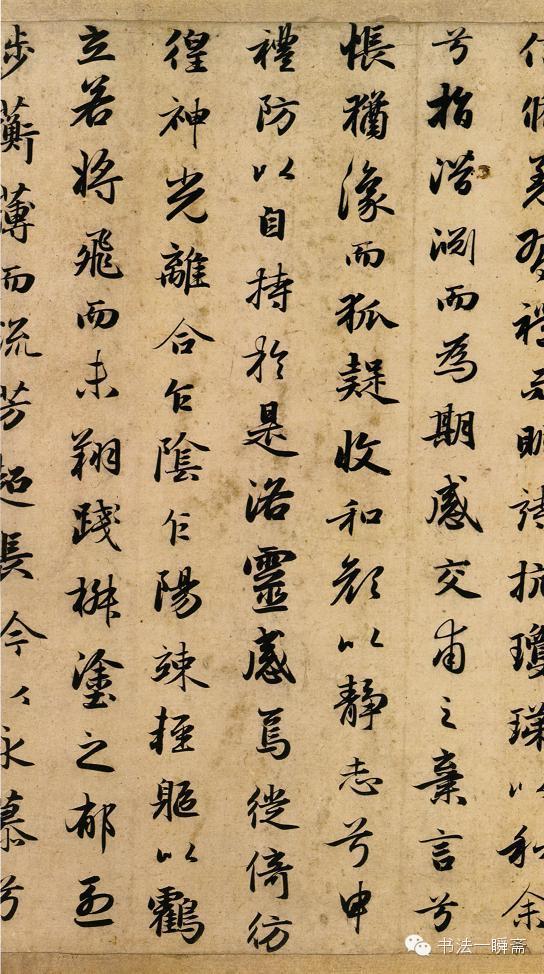 信脩羌習禮而明詩抗瓊珶以和余
兮指潛淵而為期感交甫之棄言兮
悵猶豫而狐疑收和顏以靜志兮申
禮防以自持於是洛靈感焉徙倚彷
徨神光離合乍陰乍陽竦輕軀以鶴
立若将飛而未翔踐椒塗之郁烈
步蘅薄而流芳超長吟以永慕兮
书法一瞬斋